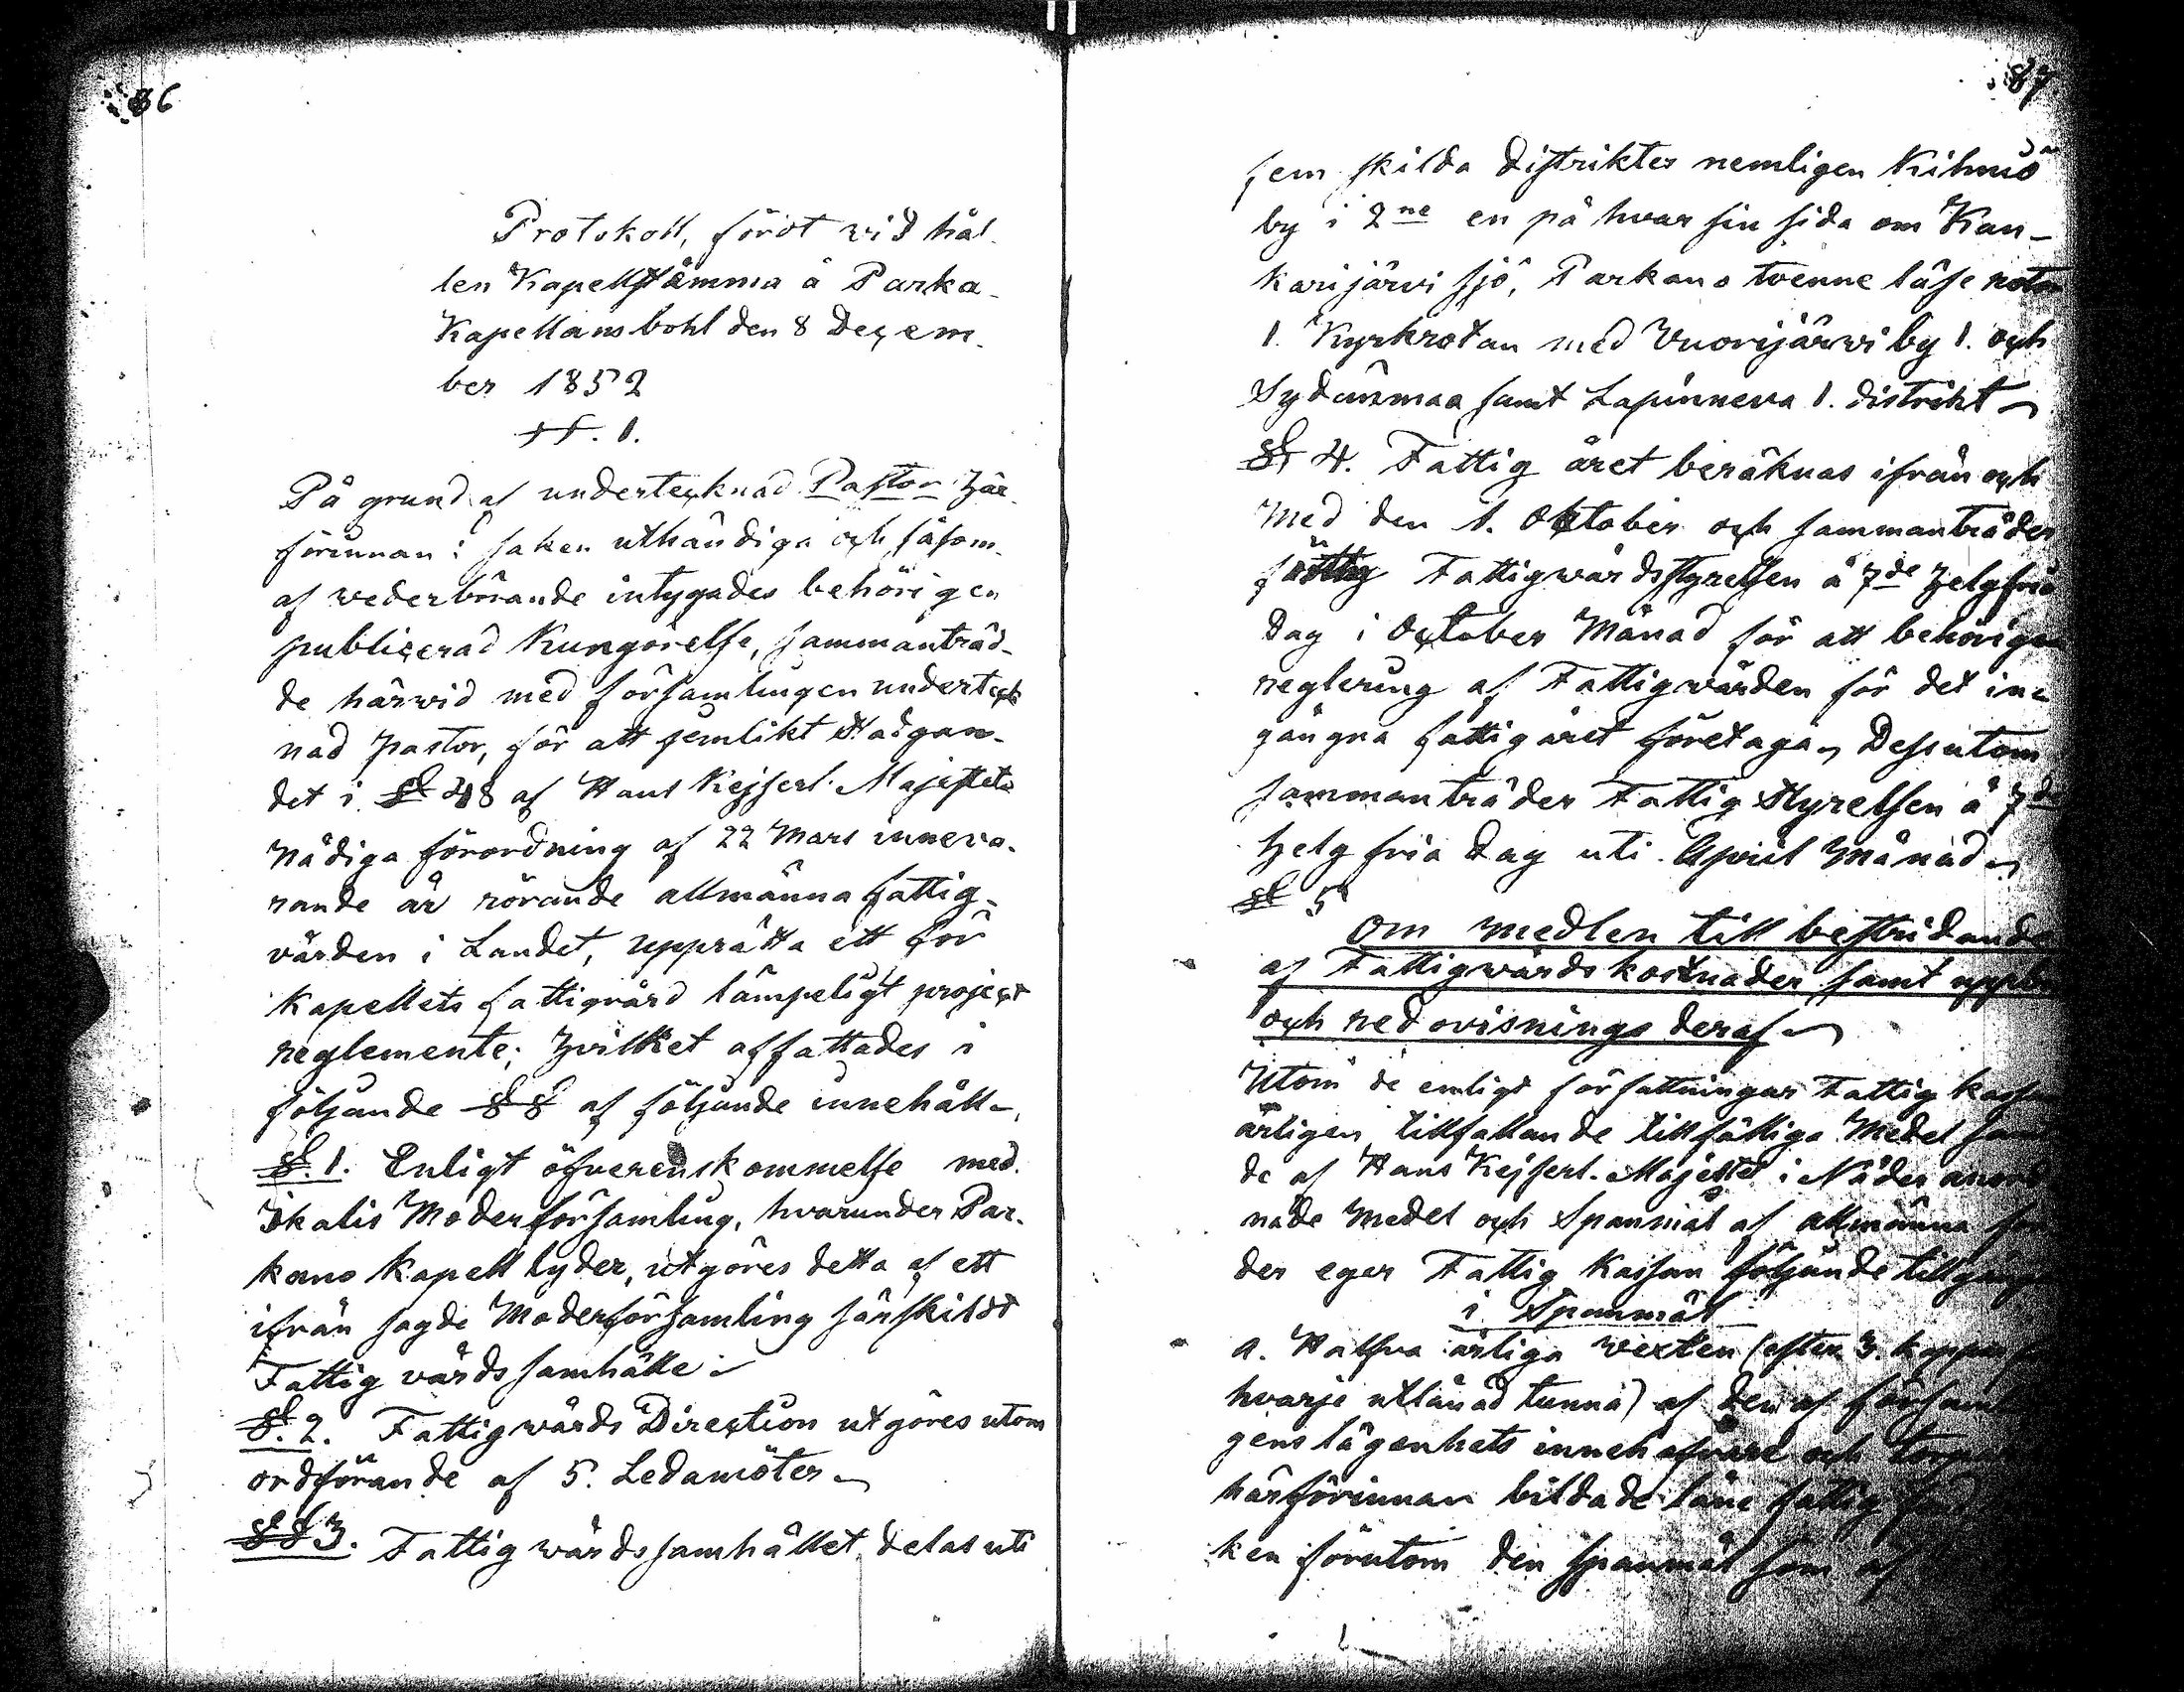 86
Protokoll, fördt wid hål-
len Kapellstämma å Parka-
Kapellansbohl den 8 Decem-
ber 1852
§§. 1.
På grund af undertecknad Pastor här-
förinnan i saken uthändiga och såsom
af wederbörande intygades behörigen
publicerad Kungörelse, sammanträd-
de härwid med församlingen underteck
nad pastor, för att jemlikt stadgan-
det i § 48 af Hans Kejserl. Majestets
Nådiga förordning af 22 Mars inneva-
rande år rörande allmänna fattig-
vården i Landet, upprätta ett för
Kapellets fattigvård lämpeligt project
reglemente; hvilket affattades i
följande §§ af följande innehåll.
§. 1. Enligt öfverenskommelse med
Ikalis Moderförsamling, hvarunder Par-
kano Kapell lyder, utgöres detta af ett
ifrån sagde Moderförsamling särskildt
Fattig vårds samhälle
§. 2. Fattigwårds Direction utgöres utom
ordförande af 5. Ledamöter
§§ 3. Fattig wårds samhället delas uti
87
fem skilda Distrikter nemligen Kihniö
by i 2ne en på hvar sin sida om Kan-
karijärvi sjö, Parkano tvenne läse rotar
1. Kyrkrotan med Vuorijärwi by 1. och
Sydänmaa samt Lapinneva 1. distrikt
§ 4. Fattig året beräknas ifrån och
Med den 1. Oktober och sammanträder
Fattigwårdsstyrelsen å 7de Helgfria
Dag i October Månad för att behörigen
reglering af Fattigwården för det in-
gångna fattigåret företaga, Dessutom
sammanträder Fattig Styrelsen å 7de
helg fria Dag uti April Månad
§ 5
Om medlen till bestridande
af Fattigwårds kostnader samt
och redovisnings deraf
Utom de enligt författningar Fattig
årligen tillfallande tillfälliga Medel
de af Hans Kejserl. Majestet i Nåder
nade Medel och Spanmål af allmänna
der eger Fattig Kassan följande
i Spanmål
a. Halfva årliga vexten (efter 3. kappar
hvarje utlånad tunna) af den af
gens lägenhets innehafvare och
härförinnan bildade låne fattig
ken förutom den spanmål som af